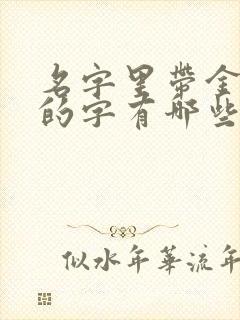 名字里带金
的字有那些
似水年华流年